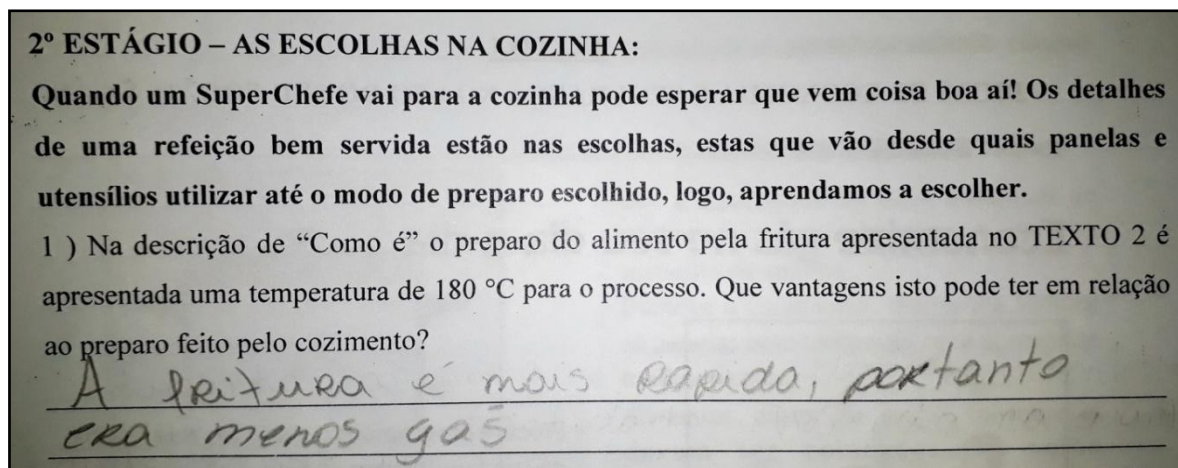 2º ESTÁGIO – AS ESCOLHAS NA COZINHA:
Quando um SuperChefe vai para a cozinha pode esperar que vem coisa boa aí! Os detalhes
de uma refeição bem servida estão nas escolhas, estas que vão desde quais panelas e
utensílios utilizar até o modo de preparo escolhido, logo, aprendamos a escolher.
1 ) Na descrição de “Como é” o preparo do alimento pela fritura apresentada no TEXTO 2 é
apresentada uma temperatura de 180 °C para o processo. Que vantagens isto pode ter em relação
ao preparo feito pelo cozimento?
A fritura é mais rapida, portanto
era menos gás